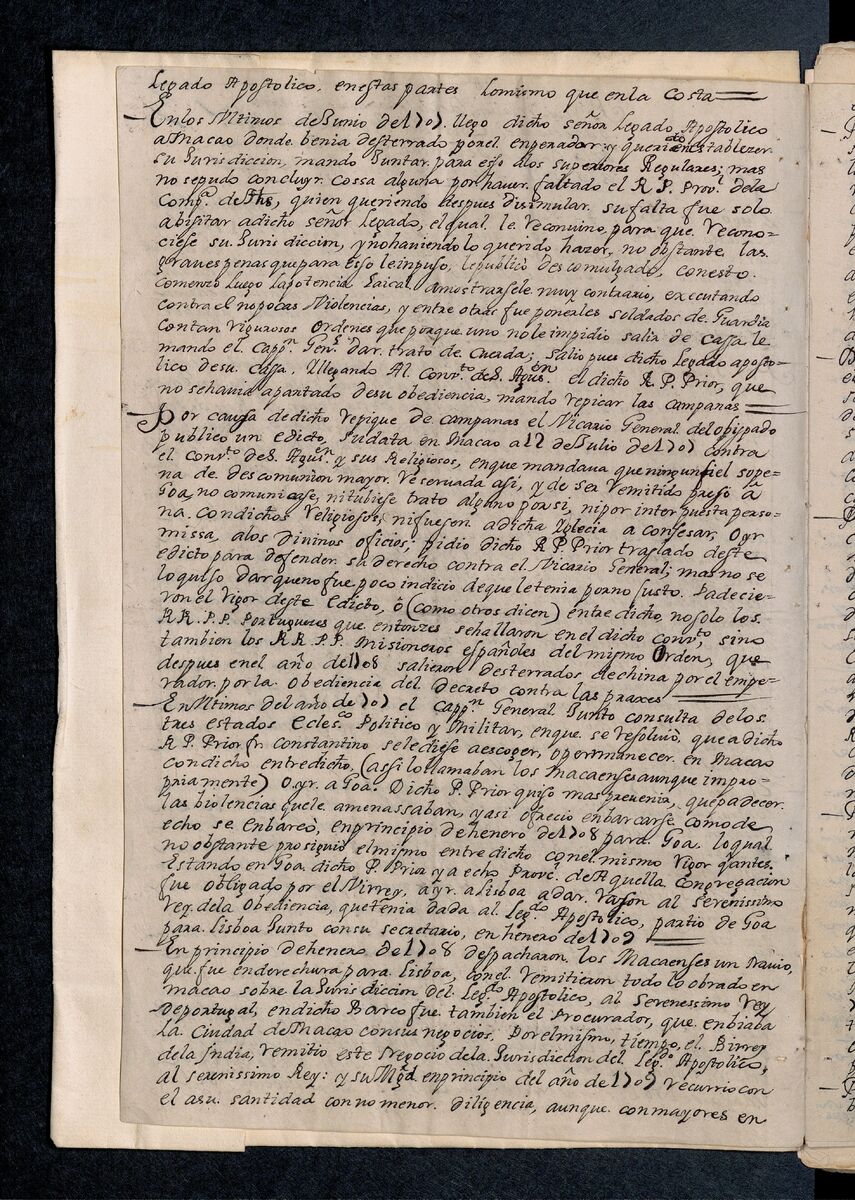 Legado Apostolico. enestas partes lomismo que enla Costa
Enlos Vltimos deJunio de1707. llego dicho señor Legado Apostolico
aMacao donde. benia desterrado porel. enperador: y queriendo establezer.
su Jurisdiccion, mando Juntar. para esso alos superiores Regulares; mas
no sepudo concluyr. cossa alguna por haver. faltado el R P. Provl. dela
Compª. de Jhs, quien queriendo despues disimular. su falta fue solo
abisitar adicho señor Legado, elqual. le reconvino, para que. recono-
ciese su. Jurisdiccion, y nohaviendolo querido hazer, no obstante. las.
graves penas quepara esso leinpuso, lepublicò descomulgado, conesto.
comenzo luego lapotencia laical. amostrarsele. muy contrario, executando
contra el nopocas Violencias, y entre otras fue ponerles soldados de. Guardia
contan rigurosos ordenes que porque uno nole impidio salir de cassa le
mando el. Cappn. Genl. dar. trato de. Cuerda; salio pues dicho Legado aposto-
lico desu. Cassa. Llegando Al Convto. deS. Agusn. el dicho R. P. Prior, que
no sehavia apartado desu obediencia, mando repicar las campanas
Por caussa dedicho repique de campanas el Vicario General delobispado
publico un edicto, sudata en Macao a12 deJulio de1707 contra
el convto. deS. Agusn. y sus Religiosos, enque mandava que ningun fiel sope-
na de. descomunion mayor. reservada asi, y de ser remitido preso à
Goa, no comunicase, nitubiese trato alguno porsi, nipor interpuesta perso-
na. condichos religiosos, nifuesen adicha Iglecia a confesar, oyr
missa, alos Divinos oficios; pidio dicho R P. Prior traslado deste
edicto para defender su derecho contra el. Vicario General; mas no se
loquiso dar queno fue poco indicio deque letenia porno justo. Padecie-
ron el rigor deste edicto, ò (como otros dicen) entredicho, no solo los.
RR. P.P. Portugueses que entonzes sehallaron en el dicho convto. sino
tambien los RR. P.P. Misioneros españoles del mismo Orden, que
despues enel año de1708 salieron desterrados dechina por el empe-
rador. por la obediencia del Decreto contra las praxes
En Vltimos del año de 707 el Cappn. General Junto consulta delos.
tres estados Ecclesco. Politico y Militar, enque. se resolviò, que a dicho
R P. Prior fr. constantino selediese aescoger, o permanecer. en Macao
condicho entredicho, (assi lollamaban los Macaenses aunque impro-
priamente) o yr. a Goa. Dicho P. Prior quiso mas prevenir, que padecer.
las biolencias quele. amenassaban, y asi ofrecio enbarcarse comode
echo se. enbarcò, enprincipio dehenero de1708 para. Goa. loqual
no obstante prosiguio elmismo entredicho conel mismo rigor qantes.
Estando en Goa. dicho P. Prior y a echo Provl. deAquella Congregacion
fue obligado por el Virrey, ayr. alisboa adar. razon al Serenissimo
rey. dela obediencia, quetenia dada al. Legdo. Apostolico, partio de Goa
para. lisboa Junto consu secretario, en henero de1709
En principio dehenero de1708 despacharon. los Macaenses un Navio,
que.fue enderechura para Lisboa, conel remitieron todo lo obrado en
Macao sobre la Jurisdiccion del. Legdo. Apostolico, al Serenissimo Rey
dePortugal, endicho Barco fue. tambien el Procurador, que. enbiaba
la. Ciudad deMacao consus negocios. Por elmismo, tiempo, el. Birrey
dela India, remitio este Negocio dela. Jurisdiccion del. Legdo. Apostolico,
al serenissimo Rey: y su Mgd. enprincipio del año de 1709 recurrio con
el asu. santidad conno menor. diligencia, aunque. conmayores en